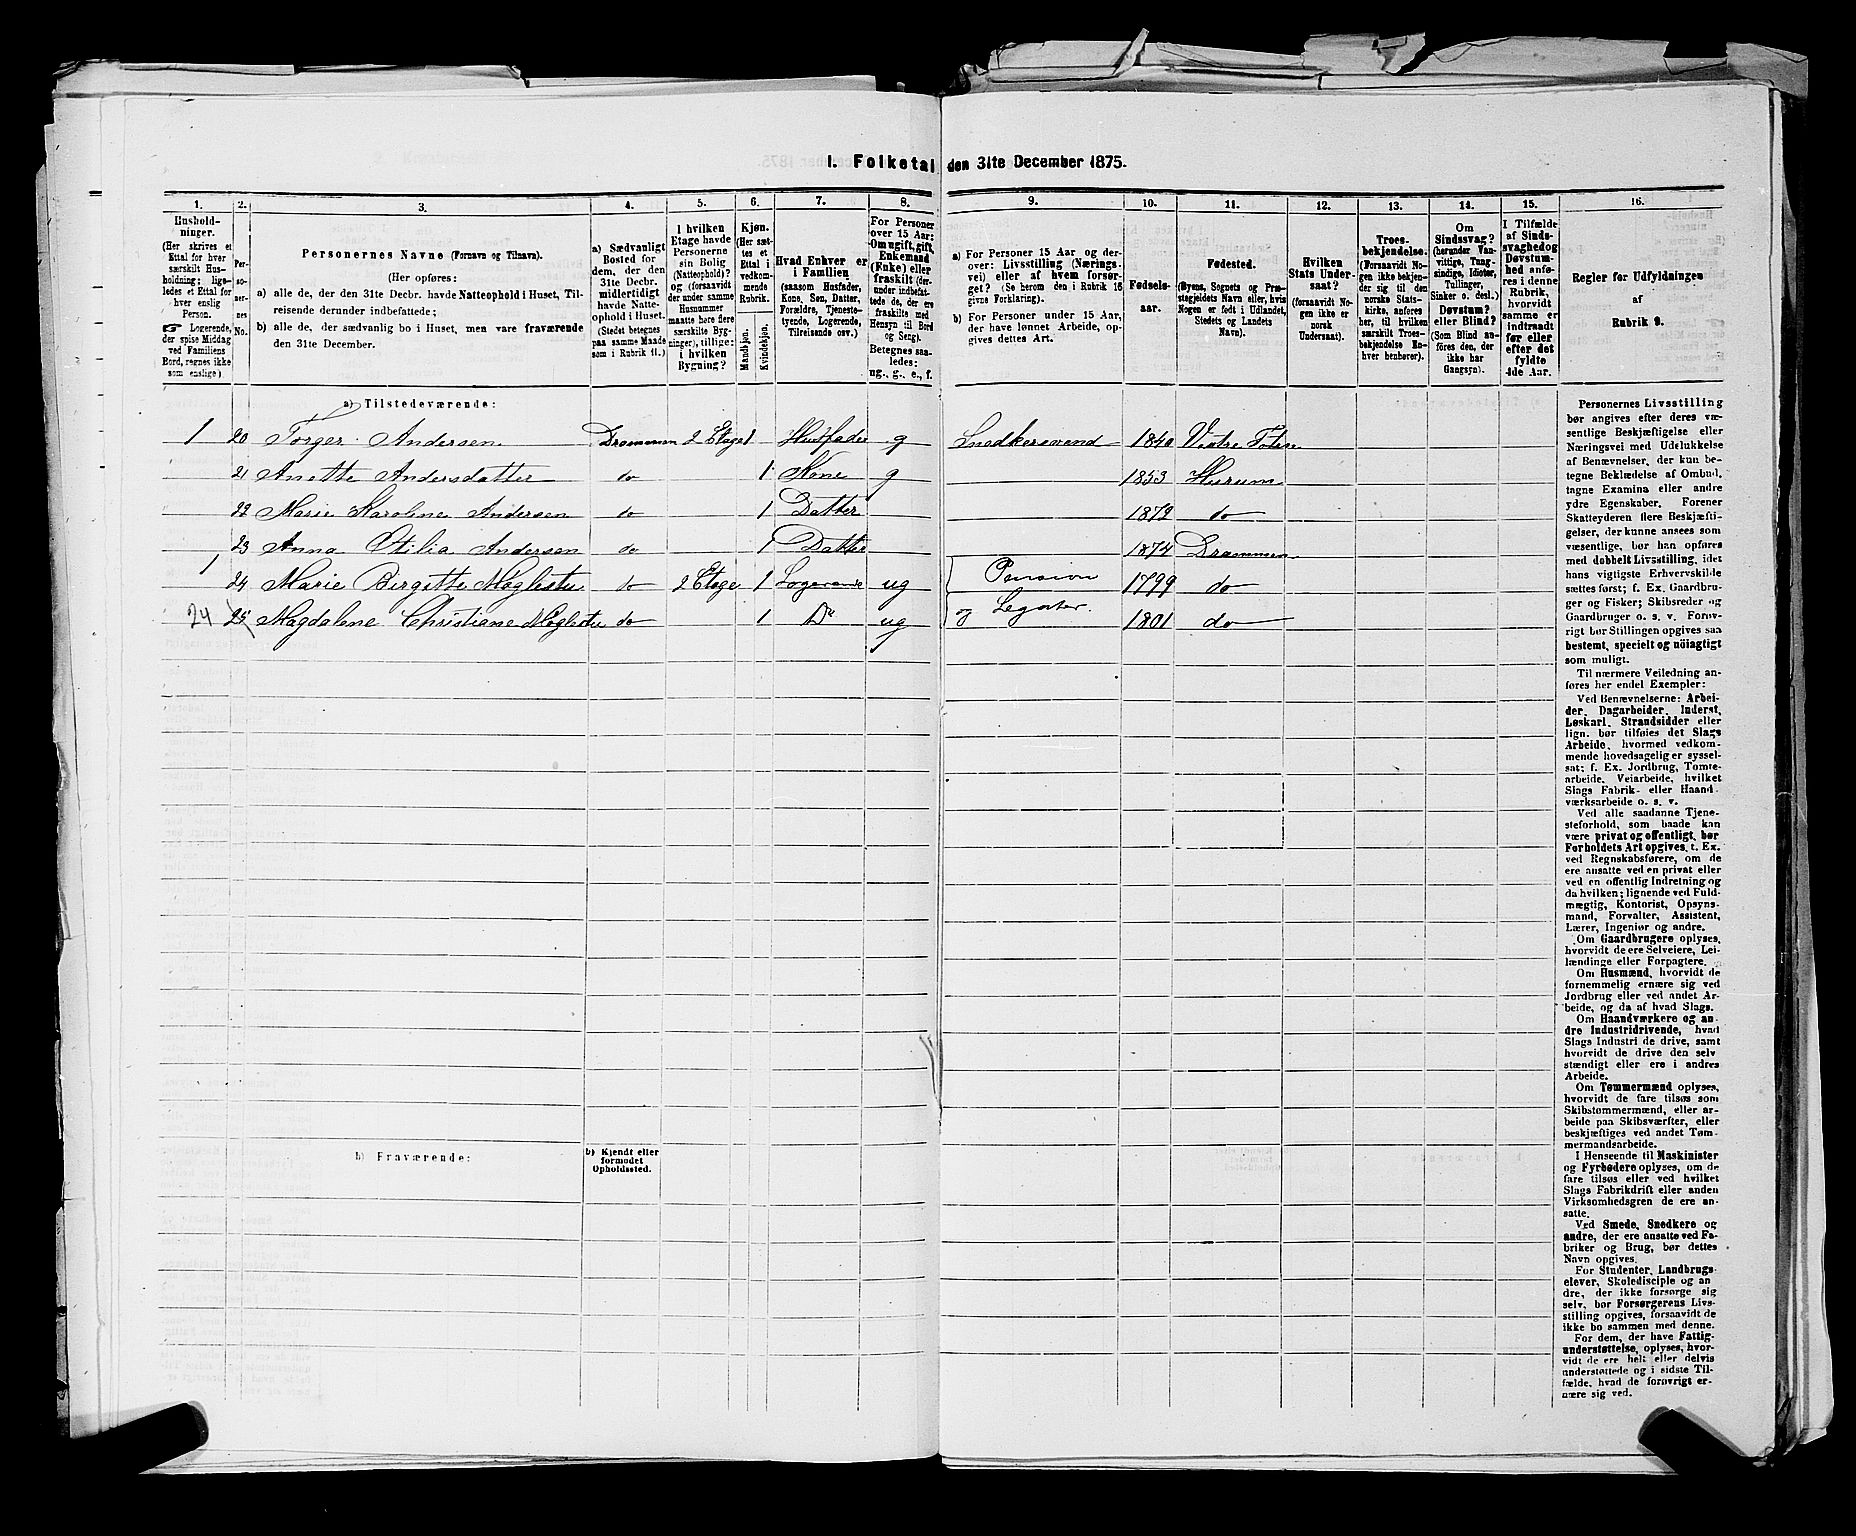 I. Folketal den 31te December 1875.
1. 2. 3. 4. 5. 6. 7. 8. 9. 10. 11. 12. 13. 14. 15. 16.
Husholdninger.
(Her skrives et
Ettal for hver
særskilt Husholdning;
ligeledes et Ettal for
hver enslig
Person.
☞ Logerende,
der spise Middag
ved Familiens
Bord, regnes ikke
som enslige)
Personernes No.
Personernes Navne (Fornavn og Tilnavn).
(Her opføres:
a) alle de, der den 31te Decbr. havde Natteophold i Huset, Tilreisende derunder indbefattede;
b) alle de, der sædvanlig bo i Huset, men vare fraværende
den 31te December.
a) Sædvanligt
Bosted for
dem, der den
31te Decbr.
midlertidigt
havde Natteophold i Huset.
(Stedet betegnes
paa samme Maade
som i Rubrik 11.)
I hvilken
Etage havde
Personerne
sin Bolig
(Natteophold)?
og (forsaavidt
der under samme
Husnummer
maatte høre flere
særskilte Bygninger), tillige:
i hvilken
Bygning?
Kjøn.
(Her sættes et
Ettal i
vedkommende
Rubrik.
Mandkjøn.
Kvindekjøn.
Hvad Enhver er
i Familien
(saasom Husfader,
Kone, Søn, Datter,
Forældre, Tjenestetyende, Logerende,
Tilreisende osv.)
For Personer
over 15 Aar:
Om ugift, gift,
Enkemand
(Enke) eller
fraskilt (derunder indbefattede de, der ere
fraskilte med
Hensyn til Bord
og Seng).
Betegnes saaledes:
ug., g., e., f.
a) For Personer 15 Aar og derover: Livsstilling (Næringsvei) eller af hvem forsørget? (Se herom den i Rubrik 16
givne Forklaring).
b) For Personer under 15 Aar,
der have lønnet Arbeide, opgives dettes Art.
Fødselsaar.
Fødested.
(Byens, Sognets og Præstegjeldets Navn eller, hvis
Nogen er født i Udlandet,
Stedets og Landets
Navn).
Hvilken
Stats Undersaat?
(forsaavidt Nogen ikke er
norsk
Undersaat).
Troesbekjendelse.
(Forsaavidt Nogen ikke bekjender sig til den
norske Statskirke, anføres
her, til hvilken
særskilt Troesbekjendelse Enhver benhører).
Om
Sindssvag?
(herunder Vanvittige, Tungsindige, Idioter,
Tullinger,
Sinker o. desl.)
Døvstum?
eller Blind?
(Som Blind anføres den, der
ikke har
Gangsyn).
I Tilfælde
af Sindssvaghed og
Døvstumhed anføres i denne
Rubrik,
hvorvidt
samme er
indtraadt
før eller
efter det
fyldte
4de Aar.
Regler for Udfyldningen
af
Rubrik 9.
a) Tilstedeværende:
1 20 Torger Andersen Drammen 2 Etage 1 Husfader g Snedkersvend 1840 Vestre Toten
21 Anette Andersdatter do 1 Kone g 1853 Hurum
22 Marie Karoline Andersen do 1 Datter 1872 do
23 Anna Otilia Andersen do 1 Datter 1874 Drammen
1 24 Marie Birgitte Møglestu do 2 Etage 1 Logerende ug Pension 1799 do
24 25 Magdalene Christiane Møglestu do 1 Do ug og Legater 1801 do
b) Fraværende:
b) Kjendt eller
formodet
Opholdssted.
Personernes Livsstilling
bør angives efter deres væsentlige Beskjæftigelse eller
Næringsvei med Udelukkelse
af Benævnelser, der kun betegne Beklædelse af Ombud,
tagne Examina eller andre
ydre Egenskaber. Forener
Skatteyderen flere Beskjæftigelser, der kunne ansees som
væsentlige, bør han opføres
med dobbelt Livsstilling, idet
hans vigtigste Erhvervskilde
sættes først; f. Ex. Gaardbruger og Fisker; Skibsreder og
Gaardbruger o. s. v. Forøvrigt bør Stillingen opgives saa
bestemt, specielt og nöiagtigt
som muligt.
Til nærmere Veiledning anføres her endel Exempler:
Ved Benævnelserne: Arbeider, Dagarbeider, Inderst,
Løskarl, Strandsidder eller
lign. bør tilføies det Slags
Arbeide, hvormed vedkommende hovedsagelig er sysselsat; f. Ex. Jordbrug, Tomtearbeide, Veiarbeide, hvilket
Slags Fabrik- eller Haandværksarbeide o. s. v.
Ved alle saadanne Tjenesteforhold, som baade kan
være privat og offentligt, bør
Forholdets Art opgives, f. Ex.
ved Regnskabsførere, om de
ere ansatte ved en privat eller
ved en offentlig Indretning og
da hvilken; lignende ved Fuldmægtig, Kontorist, Opsynsmand, Forvalter, Assistent,
Lærer, Ingeniør og andre.
Om Gaardbrugere oplyses,
hvorvidt de ere Selveiere, Leilændinge eller Forpagtere.
Om Husmænd, hvorvidt de
fornemmelig ernære sig ved
Jordbrug eller ved andet Arbeide, og da af hvad Slags.
Om Haandværkere og andre Industridrivende, hvad
Slags Industri de drive, samt
hvorvidt de drive den selvstændigt eller ere i andres
Arbeide.
Om Tømmermænd oplyses,
hvorvidt de fare tilsøs som
Skibstømmermænd, eller arbeide paa Skibsværfter, eller
beskjæftiges ved andet Tømmermandsarbeide.
I Henseende til Maskinister
og Fyrbødere oplyses, om de
fare tilsøs eller ved hvilket
Slags Fabrikdrift eller anden
Virksomhedsgren de ere ansatte.
Ved Smede, Snedkere og
andre, der ere ansatte ved Fabriker og Brug, bør dettes
Navn opgives.
For Studenter, Landbrugselever, Skoledisciple og andre, der ikke forsørge sig
selv, bør Forsørgerens Livsstilling opgives, forsaavidt de
ikke bo sammen med denne.
For dem, der have Fattigunderstøttelse, oplyses, hvorvidt de ere helt eller delvis
understøttede og i sidste Tilfælde, hvad de forøvrigt ernære sig ved.